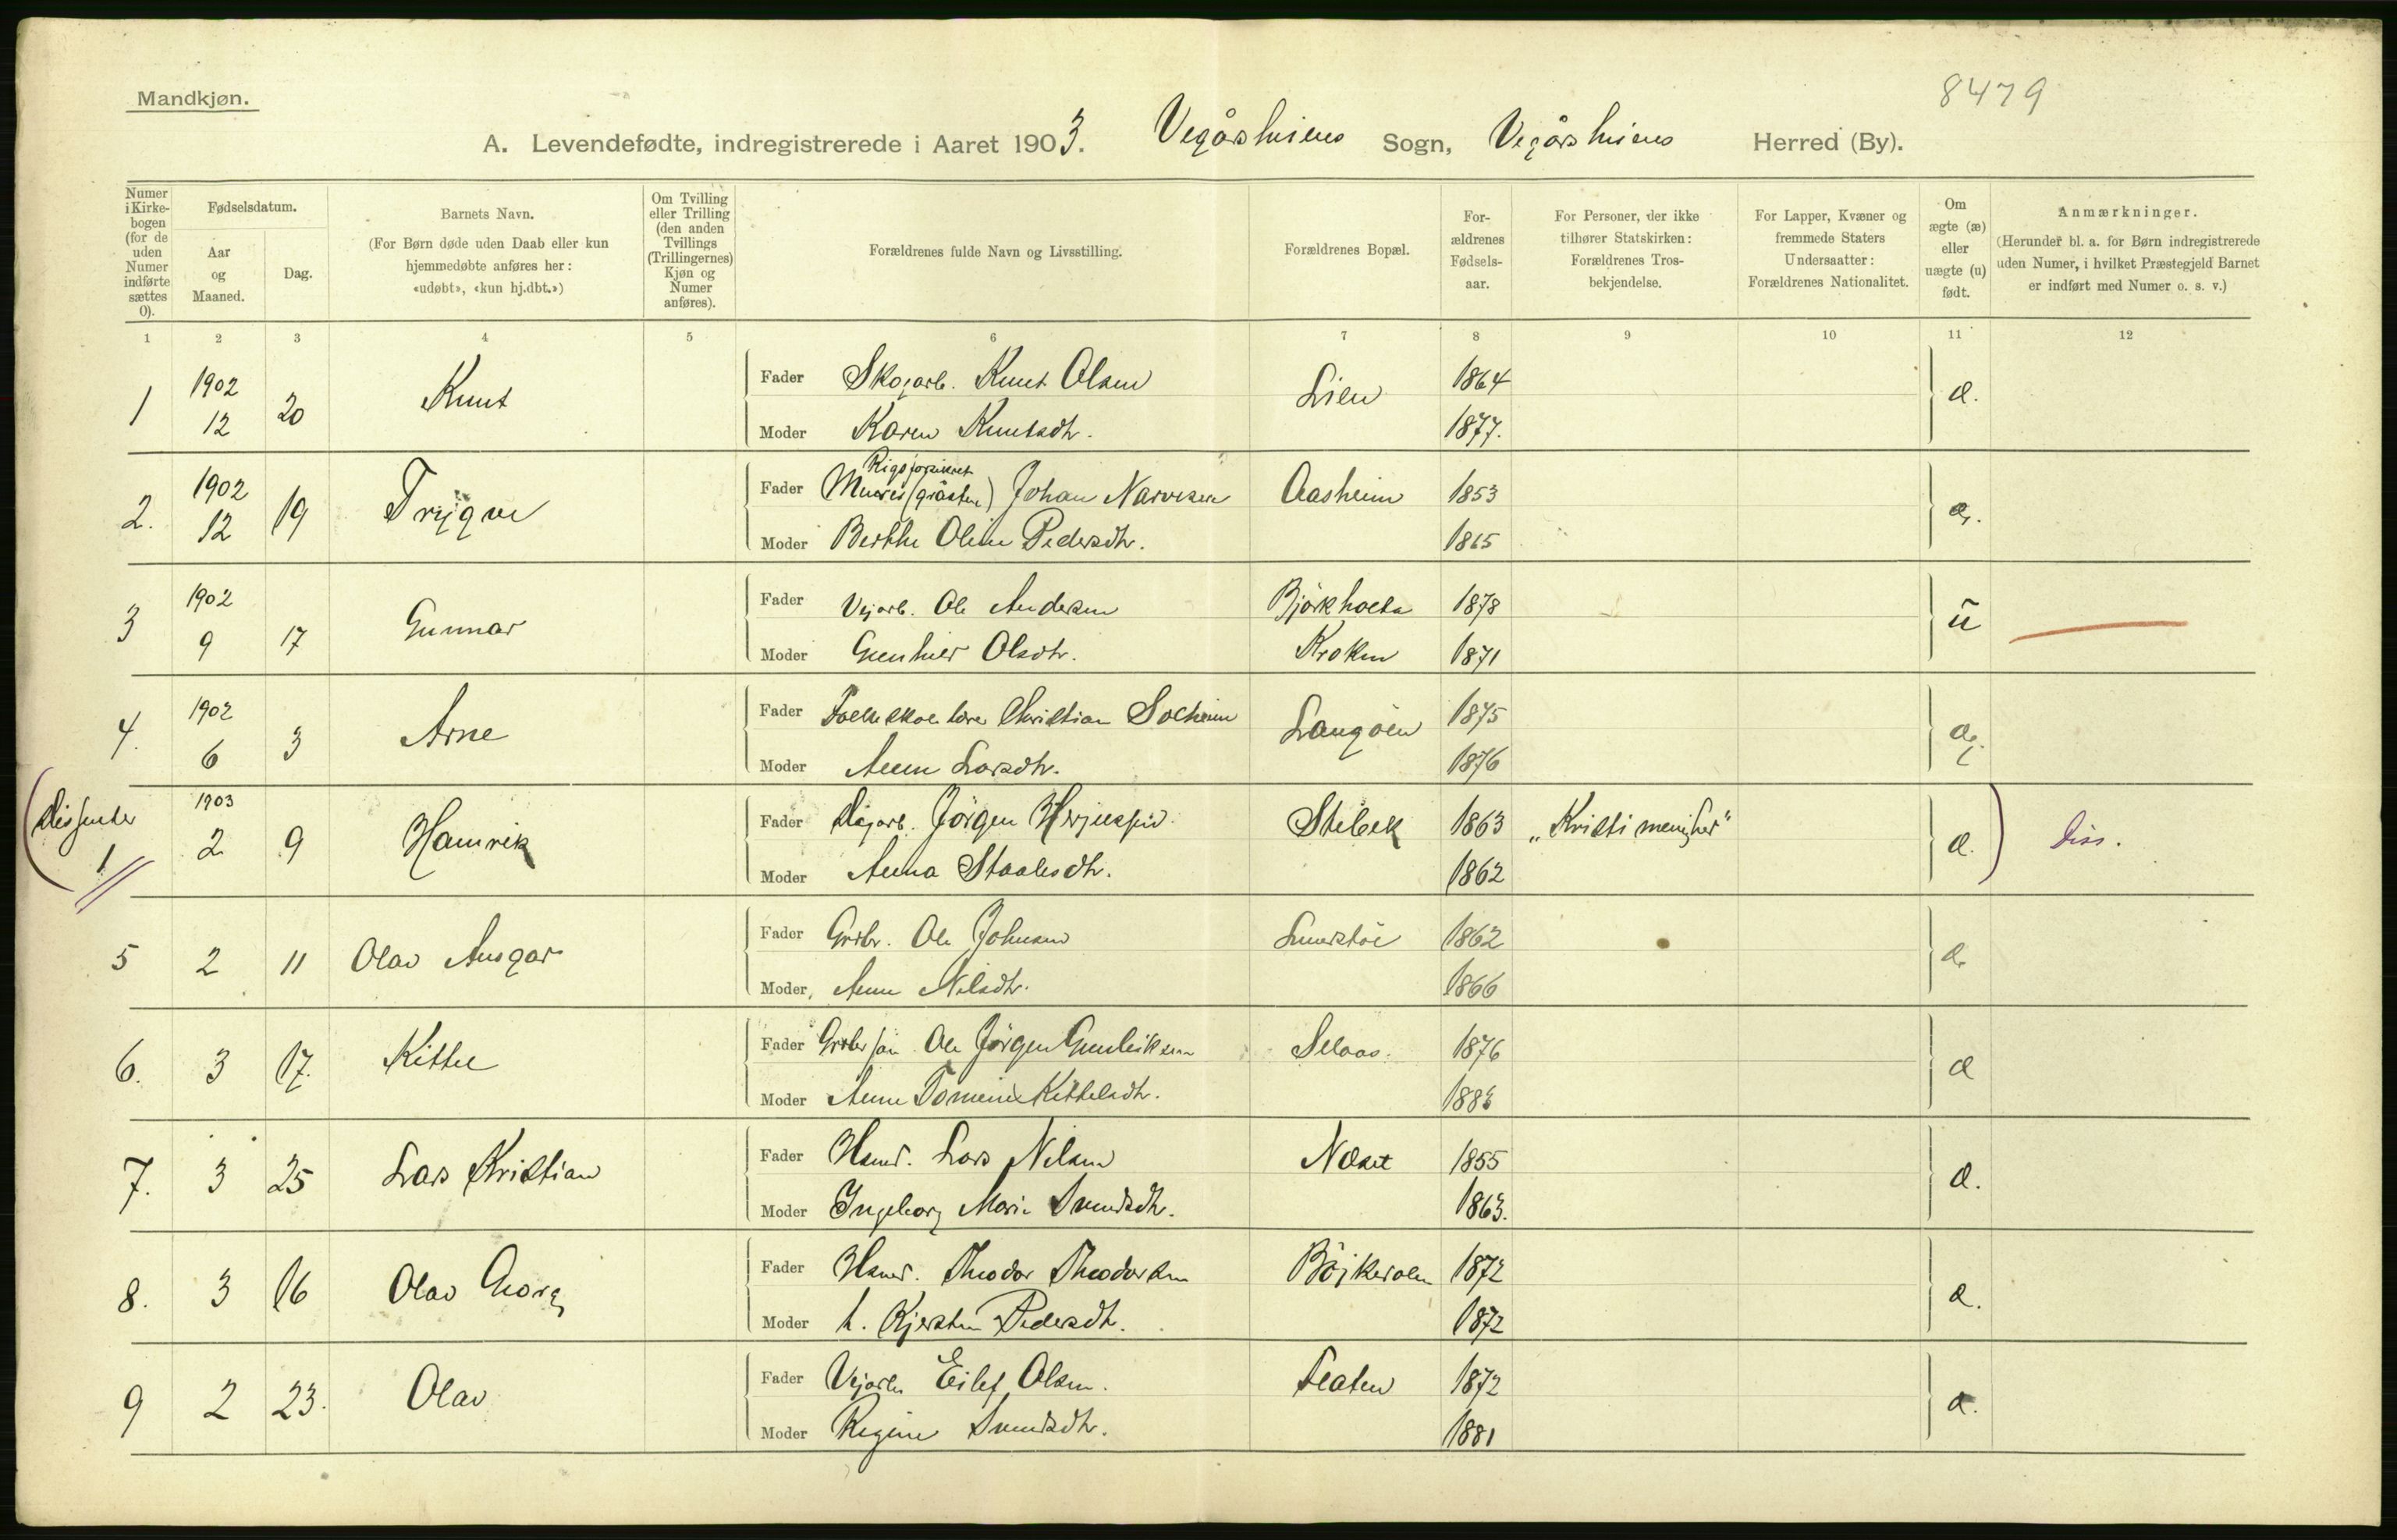 Mandkjøn.
8479
A. Levendefødte, indregistrerede i Aaret 1903. Vegårshiens Sogn, Vegårshiens Herred (By).
Numer i Kirke- bogen (for de uden Numer indførte sættes 0).
Fødselsdatum.
Aar og Maaned.
Dag.
Barnets Navn.
(For Børn døde uden Daab eller kun hjemmedøbte anføres her: «udøbt», «kun hj.dbt.»)
Om Tvilling eller Trilling (den anden Tvillings (Trillingernes) Kjøn og Numer anføres).
Forældrenes fulde Navn og Livsstilling.
Forældrenes Bopæl.
For- ældrenes Fødsels- aar.
For Personer, der ikke tilhører Statskirken: Forældrenes Tros- bekjendelse.
For Lapper, Kvæner og fremmede Staters Undersaatter: Forældrenes Nationalitet.
Om ægte (æ) eller uægte (u) født.
Anmærkninger.
(Herunder bl. a. for Børn indregistrerede uden Numer, i hvilket Præstegjeld Barnet er indført med Numer o. s. v.)
1 2 3 4 5 6 7 8 9 10 11 12
1 1902 12 20 Knut Fader Skogarb. Knut Olsen Lien 1864 æ.
Moder Karen Knutsdtr. 1877.
2. 1902 12 19 Trygve Fader Johan Narvesen Aasheim 1853 æ.
Moder Berthe Oline Pedersdtr. 1865
3 1902 9 17 Gunnar Fader Vejarb. Ole Andersen 1878 u
Moder Gunhild Olsdtr. Kroken 1871
4. 1902 6 3 Arne Fader Christian Solheim Langöen 1875 æ.
Moder Anne Larsdtr. 1876
(Dissenter 1 1903 2 9 Hamrik Fader Jörgen Stibek 1863 „Kristi menighed" æ.) Diss.
Moder Anna Staalesdtr. 1862
5 2 11 Olav Ansgar Fader Grbr. Ole Johnsen 1862 æ
Moder Anne Nilsdtr. 1866
6. 3 17. Kittel Fader Ole Jörgen Gunleiksen Selaas. 1876 æ
Moder Anne Kittelsdtr. 1883
7. 3 25 Lars Kristian Fader Husmd. Lars Nilsen Næset 1855 æ.
Moder Ingeborg Marie Svendsdtr. 1863.
8. 3 16 Olav Georg Fader Husmd. Theodor Theodorsen 1872 æ.
Moder h. Kjersten Pedersdtr. 1872
9 2 23. Olav Fader Vejarb. Eilef Olsen. Flaten 1872 æ.
Moder Regine Svendsdtr. 1881